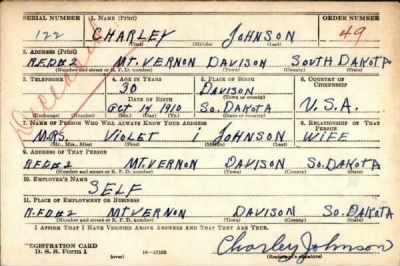 SERIAL NUMBER 1. NAME (Print) ORDER NUMBER
122 CHARLEY JOHNSON 49
(First) (Middle) (Last)
2. ADDRESS (Print)
R.F.D#2 MT. VERNON DAVISON SOUTH DAKOTA
(Number and street or R. F. D. number) (Town) (County) (State)
3. TELEPHONE 4. AGE IN YEARS 5. PLACE OF BIRTH 6. COUNTRY OF CITIZENSHIP
Deceased
30 DAVISON
DATE OF BIRTH (Town or county)
OCT 14 1910 SO. DAKOTA U.S.A.
(Exchange) (Number) (Mo.) (Day) (Yr.) (State or country)
7. NAME OF PERSON WHO WILL ALWAYS KNOW YOUR ADDRESS 8. RELATIONSHIP OF THAT PERSON
MRS. VIOLET I JOHNSON WIFE
(Mr., Mrs., Miss) (First) (Middle) (Last)
9. ADDRESS OF THAT PERSON
R.F.D#2 MT. VERNON DAVISON SO. DAKOTA
(Number and street or R. F. D. number) (Town) (County) (State)
10. EMPLOYER'S NAME
SELF
11. PLACE OF EMPLOYMENT OR BUSINESS
R.F.D#2 MT VERNON DAVISON SO. DAKOTA
(Number and street or R. F. D. number) (Town) (County) (State)
I AFFIRM THAT I HAVE VERIFIED ABOVE ANSWERS AND THAT THEY ARE TRUE.
REGISTRATION CARD
D. S. S. Form 1 (over) Charley Johnson
(Registrant's signature)